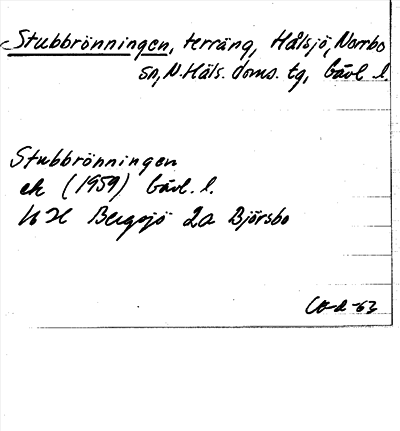 Stubbrönningen, terräng, Hålsjö, Norrbo
sn, N. Häls. doms. tg, Gävl. l.
Stubbrönningen
ek (1959) Gävl. l.
16 H Bergsjö 2a Björsbo